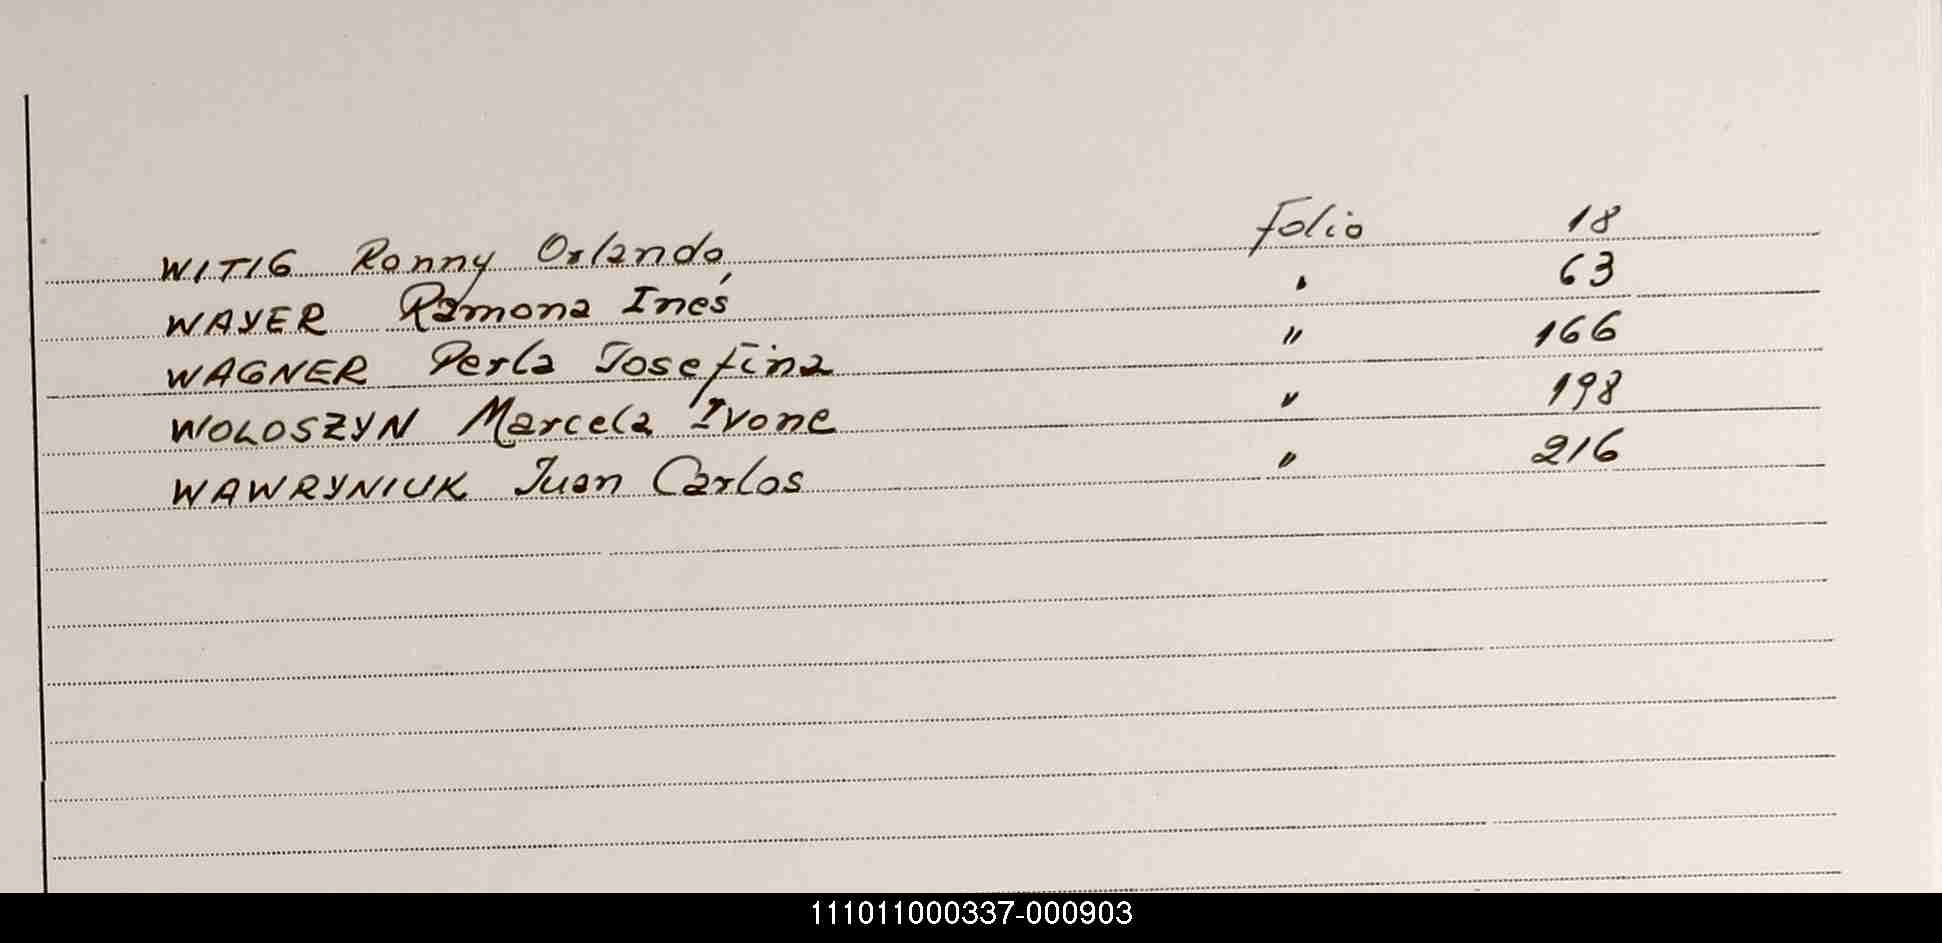 WITIG Ronny Orlando Folio 18
WAYER Ramona Inés " 63
WAGNER Perla Josefina " 166
WOLOSZYN Marcela Ivone " 198
WAWRYNIUK Juan Carlos " 216
111011000337-000903